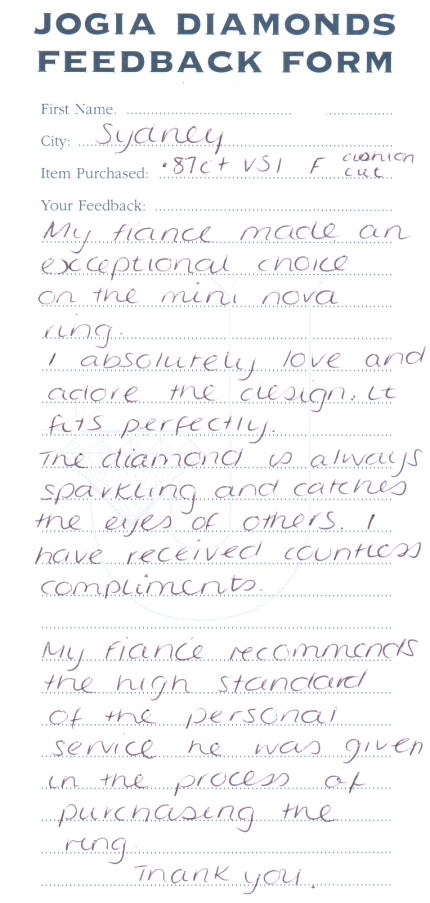 JOGIA DIAMONDS
FEEDBACK FORM
First Name.
City: Sydney
Item Purchased: .87ct VS1 F cushion cut
Your Feedback:
My fiance made an
exceptional choice
on the mini nova
ring.
I absolutely love and
adore the design. It
fits perfectly.
The diamond is always
sparkling and catches
the eyes of others. I
have received countless
compliments.
My fiancé recommends
the high standard
of the personal
service he was given
in the process of
purchasing the
ring
Thank you.